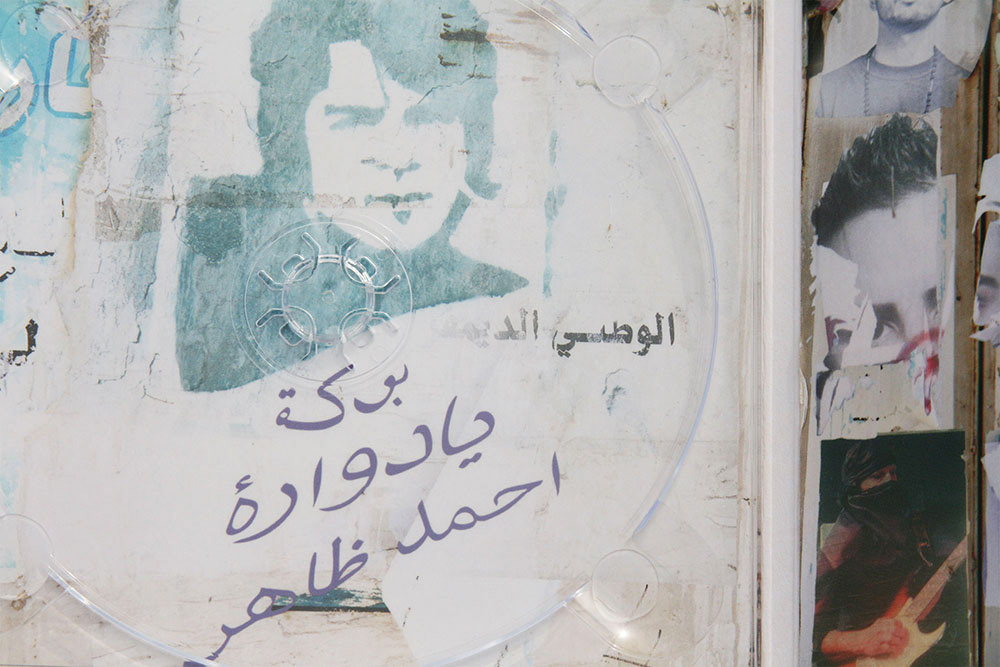 الوطني الديمق
بوكة
يادوارهٔ
احمد ظاهر